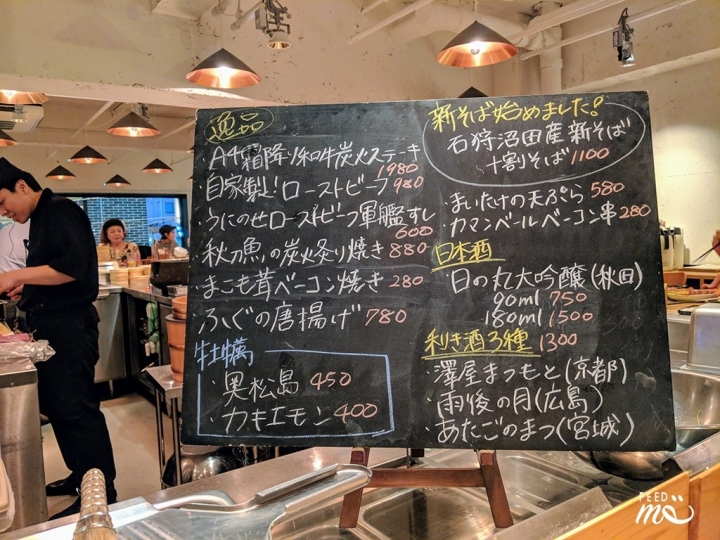 逸品
・A4霜降り和牛炭火ステーキ
1980
自家製!ローストビーフ 980
・うにのせローストビーフ軍艦すし
600
秋刀魚の炭火炙り焼き 880
・まこも茸ベーコン焼き 280
・ふぐの唐揚げ 780
牡蠣
・奥松島 450
・カキエモン 400
新そば始めました!
石狩沼田産新そば
十割そば 1100
・まいたけの天ぷら 580
・カマンベールベーコン串 280
日本酒
・日の丸大吟醸(秋田)
90ml 750
180ml 1500
利き酒3種 1300
・澤屋まつもと(京都)
・雨後の月(広島)
・あたごのまつ(宮城)
FEED
me